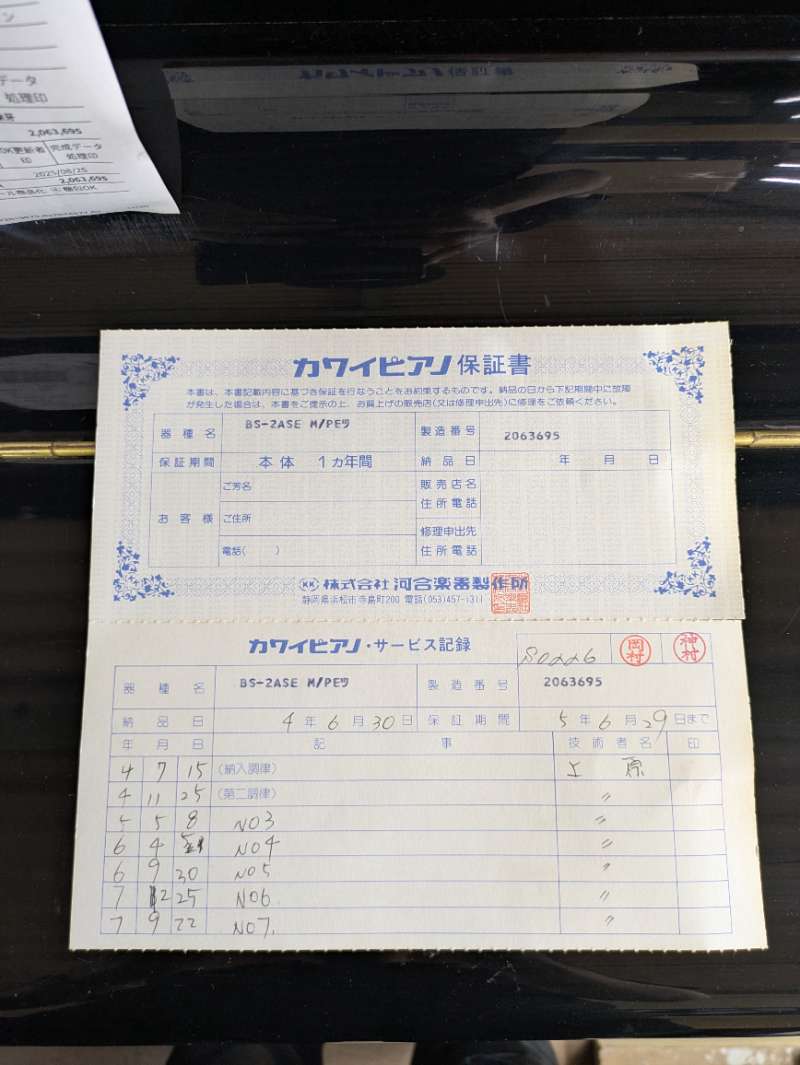 データ
処理印
2,063,695
OK更新者 完成データ
印 処理印
2,063,695
カワイピアノ 保証書
本書は、本書記載内容に基づき保証を行なうことをお約束するものです。納品の日から下記期間中に故障
が発生した場合は、本書をご提示の上、お買上げの販売店(又は修理申出先)に修理をご依頼ください。
器種名 BS-2ASE M/PEワ 製造番号 2063695
保証期間 本体 1ヵ年間 納品日 年 月 日
お客様 ご芳名 販売店名
住所電話
ご住所 修理申出先
電話( ) 住所電話
KK 株式会社 河合楽器製作所
静岡県浜松市寺島町200 電話(053)457-1311
カワイピアノ・サービス記録 岡村 神村
器種名 BS-2ASE M/PEワ 製造番号 2063695
納品日 4年 6月 30日 保証期間 5年 6月 29日まで
年 月 日 記事 技術者名 印
4 7 15 (納入調律) 上原
4 11 25 (第二調律) 〃
5 5 8 NO3 〃
6 4 NO4 〃
6 9 30 NO5 〃
7 25 NO6 〃
7 9 22 NO7. 〃